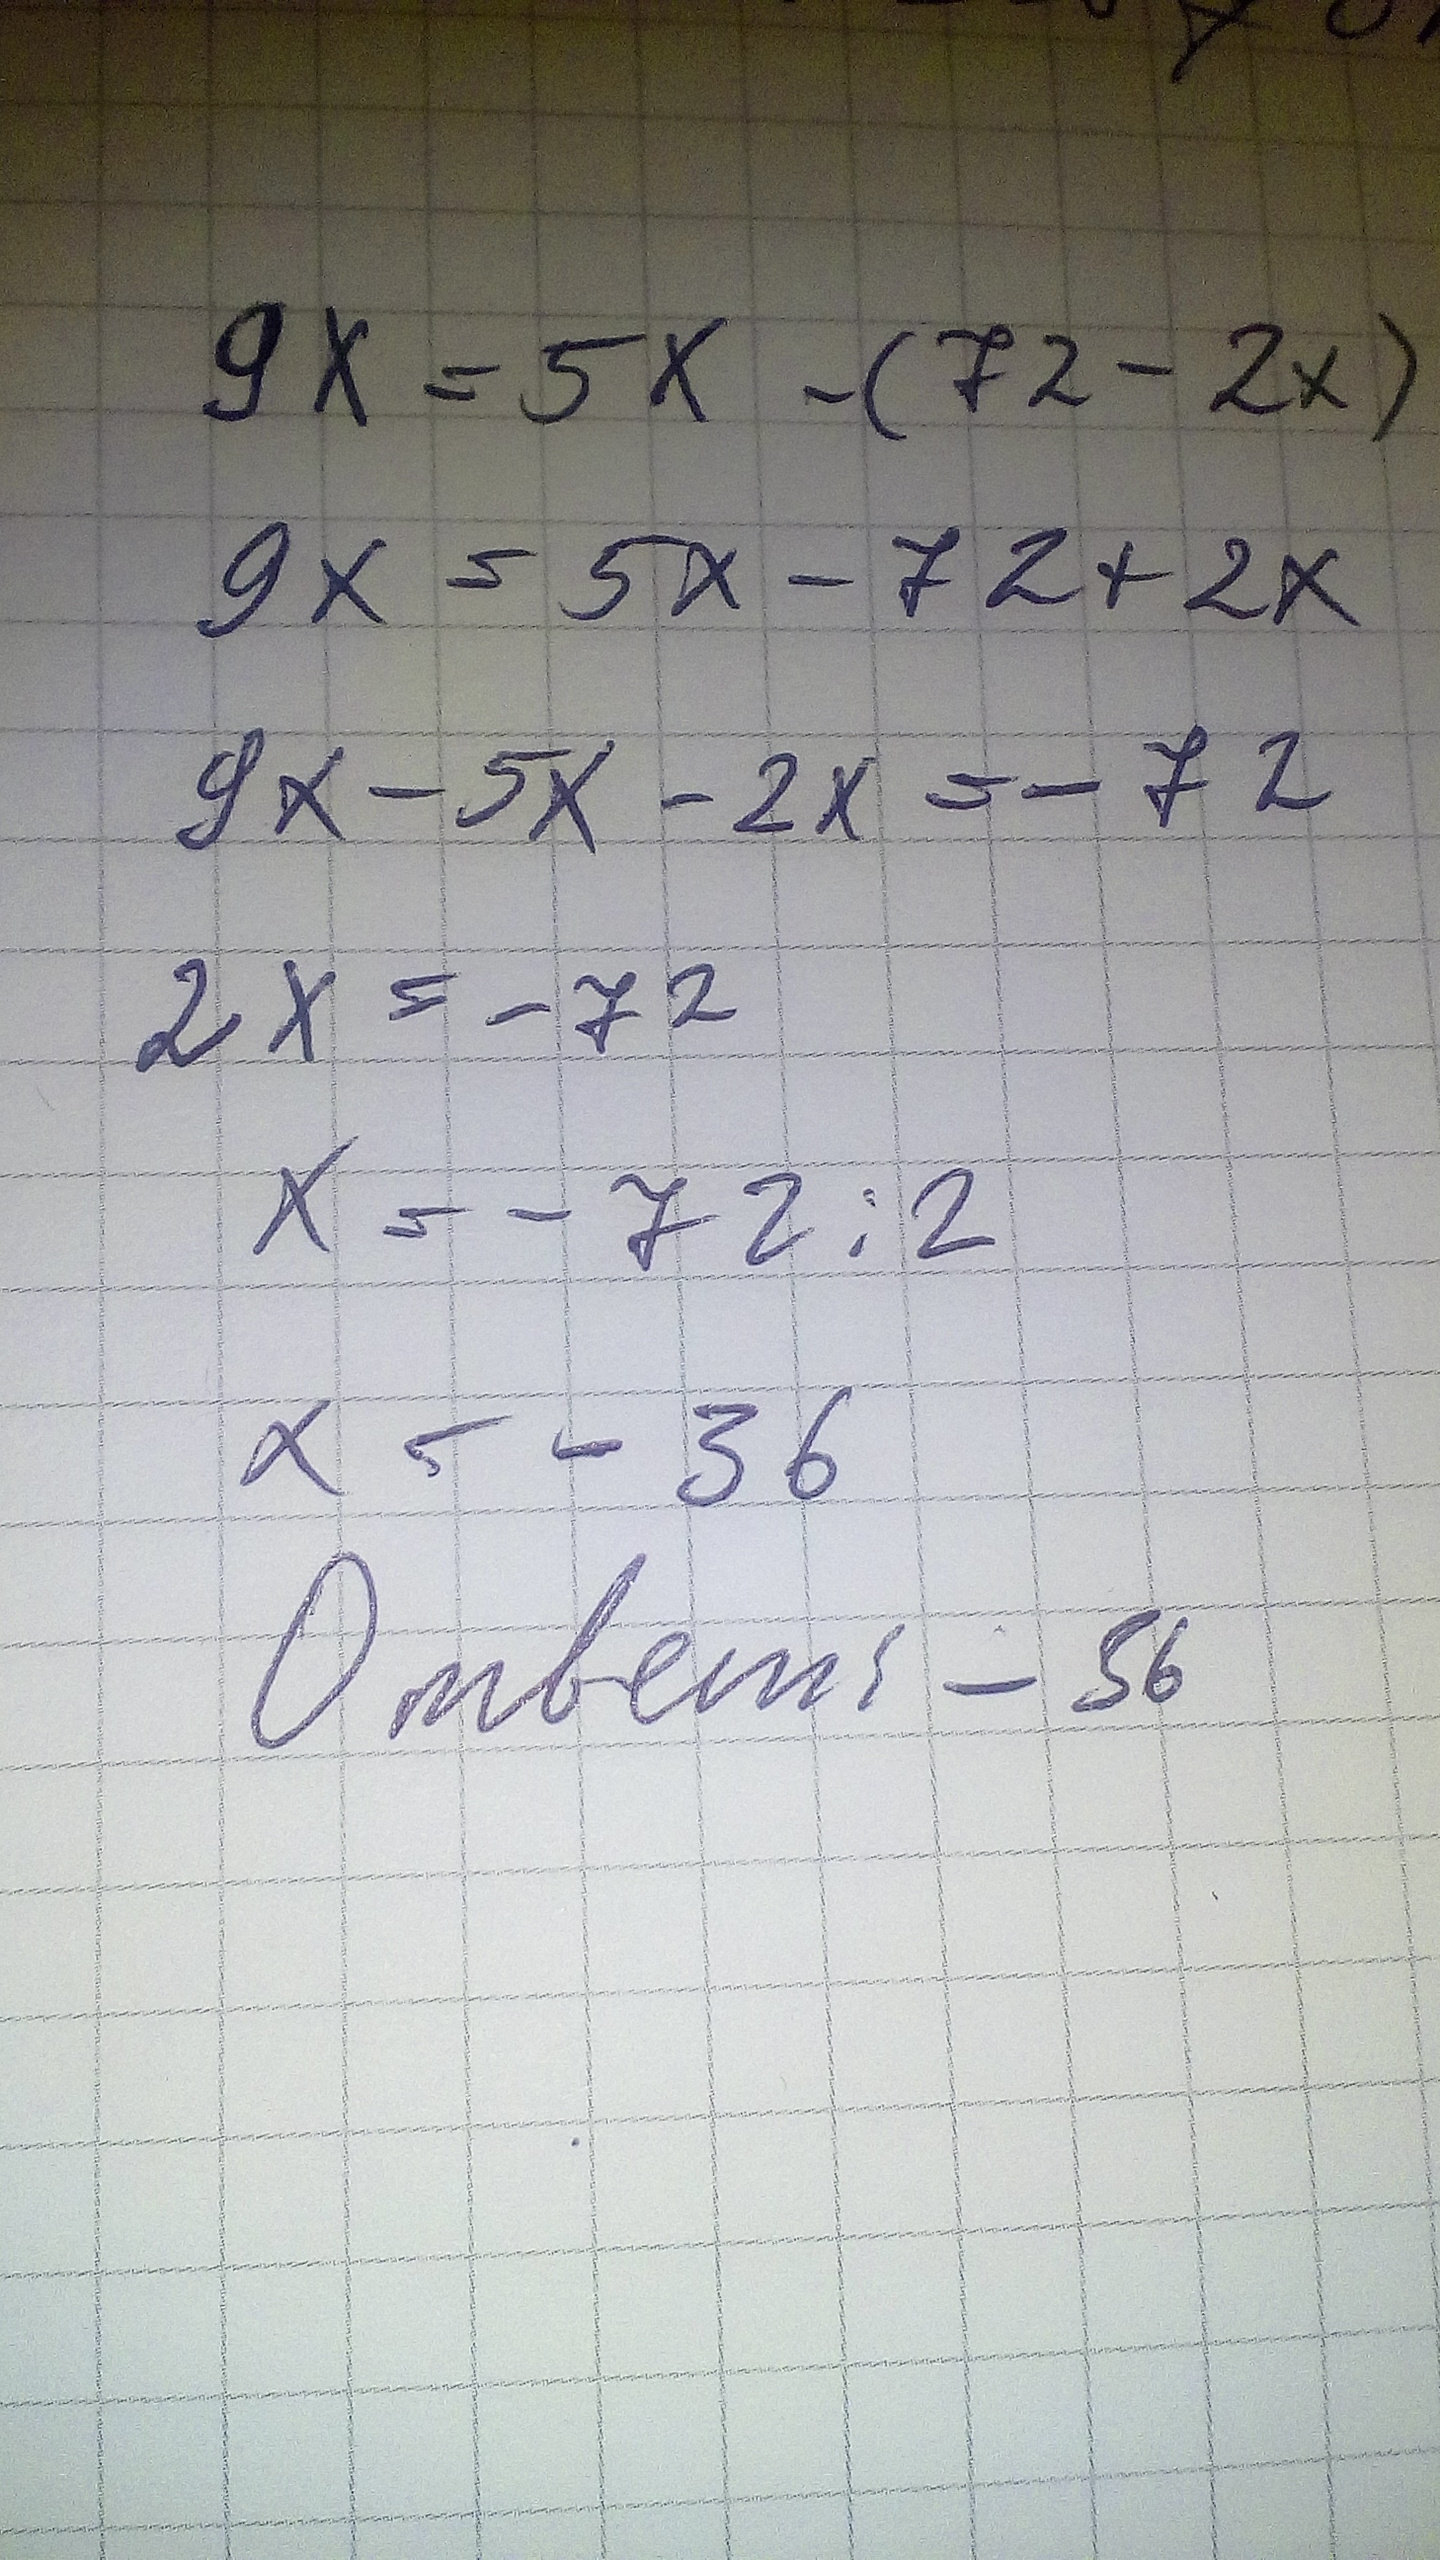 9x = 5x - (72 - 2x)
9x = 5x - 72 + 2x
9x - 5x - 2x = - 72
2x = - 72
x = - 72 : 2
x = - 36
Ответ: - 36